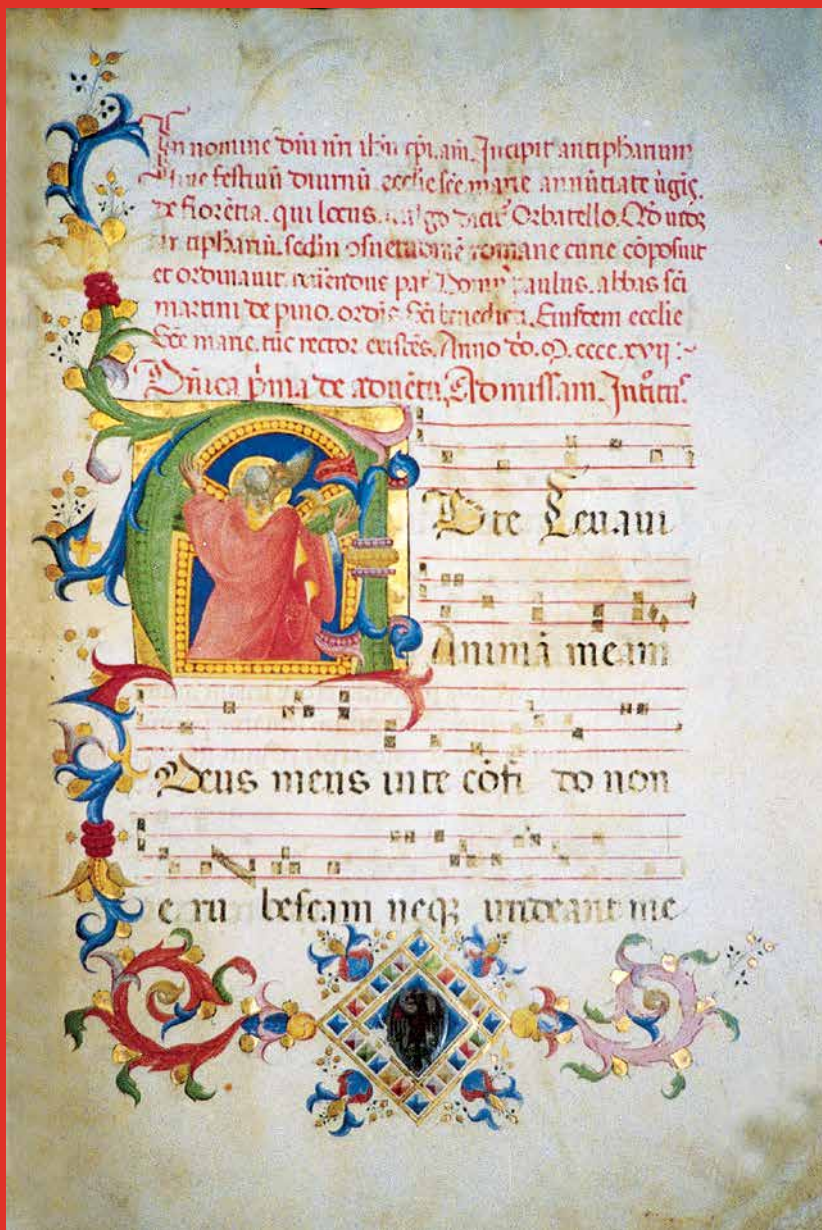 In nomine dñi nr̃i ihũ xp̃i. am̃. Incipit antipharium
festiuũ diurnũ. ecclie sc̃e marie annũtiate ũgis.
de florẽtia. qui locus. uulgo dicit᷑ Orbatello. Qd̃
antiphariũ. sc̃dm ꝯsuetudinẽ romane curie cõposuit
et ordinauit. reuerendus pat̃ Domp᷒ paulus. abbas sc̃i
martini de pino. ordĩs. Sc̃i benedicti. Eiusdem ecclie
Sc̃e marie. tũc rector existẽs. Anno dõ. M. cccc. xvij :~
Dñica p̃ma de aduẽtu, Ad missam. Introitus.
A
D te Leuaui
Animã meam
Deus meus in te cõfi do non
e ru bescam neqꝫ irrideant me